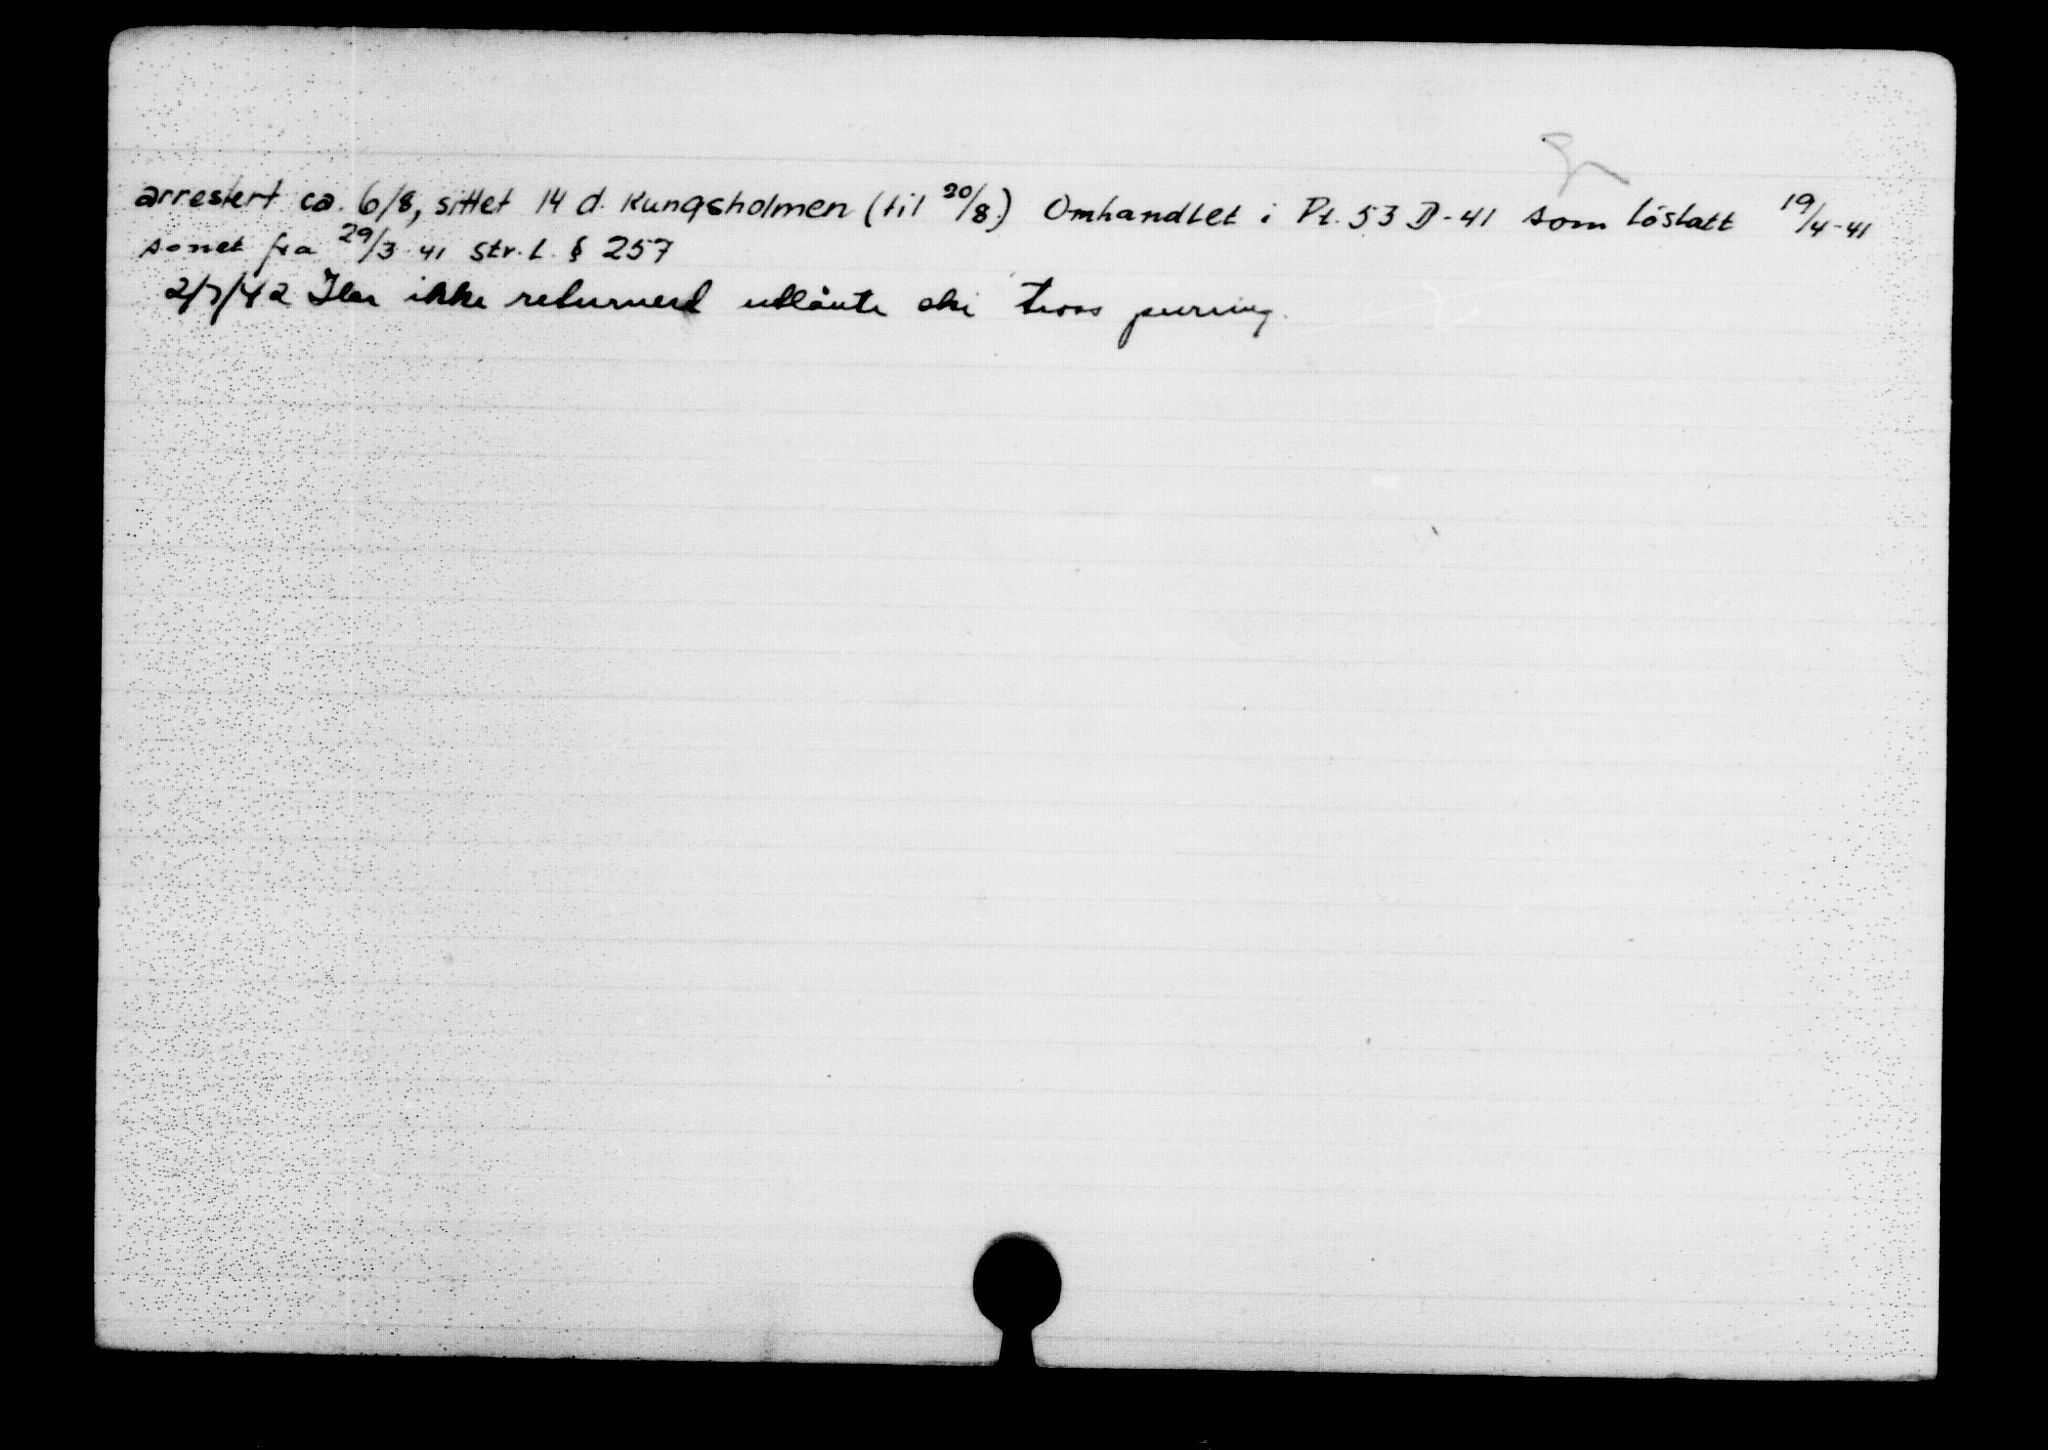 arrestert ca. 6/8, sittet 14 d. Kungsholmen (til 20/8.) Omhandlet i Pt. 53 D-41 som löslatt 19/4-41
sonet fra 29/3 41 Str. L. § 257
2/7/42 Har ikke returnerd utlånte ski tross purring.